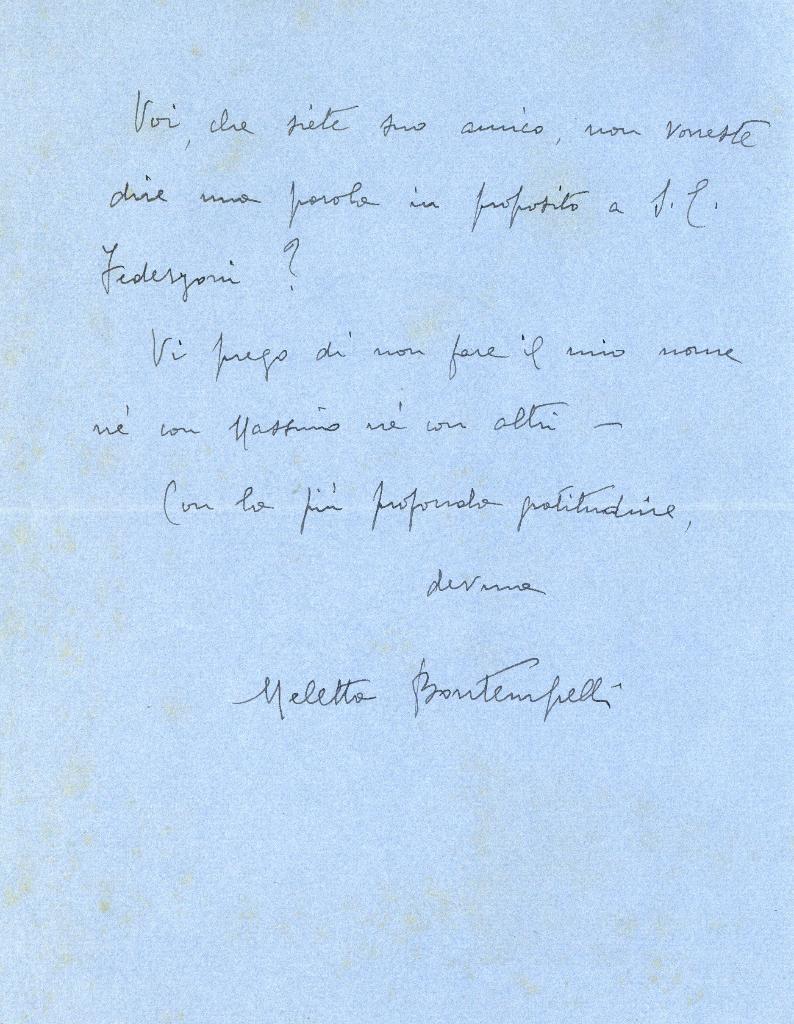 Voi, che siete suo amico, non vorreste
dire una parola in proposito a S. E.
Federzoni ?
Vi prego di non fare il mio nome
né con Massimo né con altri —
Con la più profonda gratitudine,
devma
Meletta Bontempelli